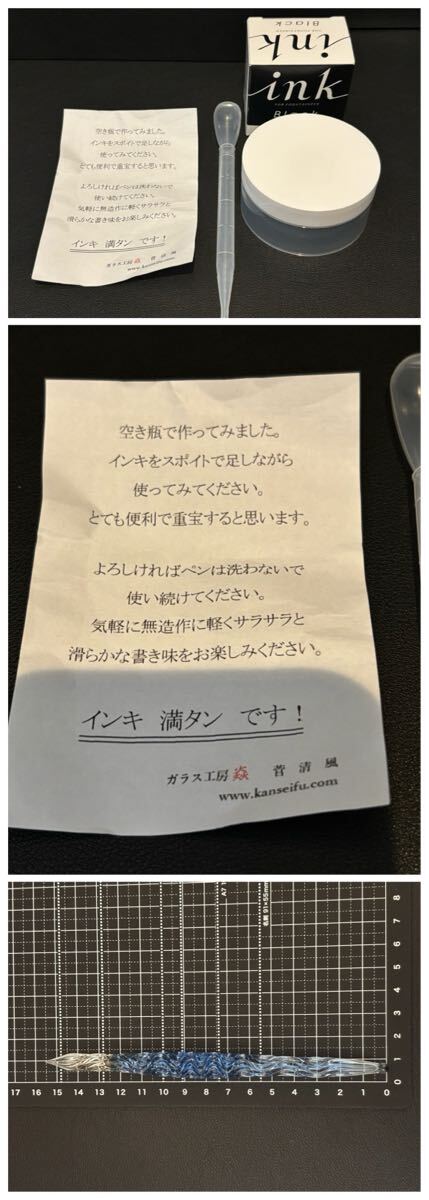 ink
Black
FOR FOUNTAINPEN
ink
FOR FOUNTAINPEN
Black
空き瓶で作ってみました。
インキをスポイトで足しながら
使ってみてください。
とても便利で重宝すると思います。
よろしければペンは洗わないで
使い続けてください。
気軽に無造作に軽くサラサラと
滑らかな書き味をお楽しみください。
インキ 満タン です!
ガラス工房 焱 菅 清 風
www.kanseifu.com
空き瓶で作ってみました。
インキをスポイトで足しながら
使ってみてください。
とても便利で重宝すると思います。
よろしければペンは洗わないで
使い続けてください。
気軽に無造作に軽くサラサラと
滑らかな書き味をお楽しみください。
インキ 満タン です!
ガラス工房 焱 菅 清 風
www.kanseifu.com
名刺 91×55mm
8
7
6
5
4
3
2
1
0
17 16 15 14 13 12 11 10 9 8 7 6 5 4 3 2 1 0